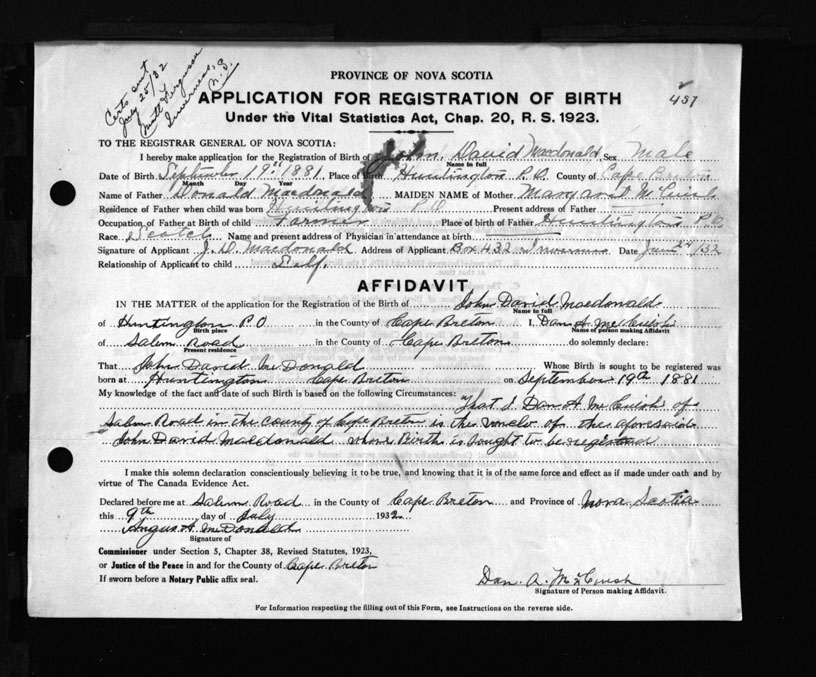 Certs sent
July 25/32
Inverness,
N. S.
PROVINCE OF NOVA SCOTIA
APPLICATION FOR REGISTRATION OF BIRTH
Under the Vital Statistics Act, Chap. 20, R. S. 1923.
TO THE REGISTRAR GENERAL OF NOVA SCOTIA:
I hereby make application for the Registration of Birth of John David Macdonald Sex Male
Name in full
Date of Birth September 19th 1881. Place of Birth Huntington P.O. County of Cape Breton
Month Day Year
Name of Father Donald Macdonald MAIDEN NAME of Mother Margaret McCuish
Residence of Father when child was born Huntington P.O Present address of Father
Occupation of Father at Birth of child Farmer Place of Birth of Father Huntington P.O.
Race Scotch Name and present address of Physician in attendance at birth
Signature of Applicant J. D. Macdonald Address of Applicant Box 432 Inverness Date June 24/32
Relationship of Applicant to child Self.
AFFIDAVIT
IN THE MATTER of the application for the Registration of the Birth of John David Macdonald
Name in full
of Huntington P.O in the County of Cape Breton I, Dan A McCuish
Birth place Name of person making Affidavit
of Salem Road in the County of Cape Breton do solemnly declare:
Present residence
That John David McDonald Whose Birth is sought to be registered was
born at Huntington Cape Breton on September 19th 1881
My knowledge of the fact and date of such Birth is based on the following Circumstances: That I Dan A McCuish of
Salem Road in the County of Cape Breton is the uncle of the aforesaid
John David Macdonald whose Birth is sought to be registered
I make this solemn declaration conscientiously believing it to be true, and knowing that it is of the same force and effect as if made under oath and by
virtue of The Canada Evidence Act.
Declared before me at Salem Road in the County of Cape Breton and Province of Nova Scotia
this 9th day of July 1932
Angus A McDonald
Signature of
Commissioner under Section 5, Chapter 38, Revised Statutes, 1923,
or Justice of the Peace in and for the County of Cape Breton
If sworn before a Notary Public affix seal.
Dan. A. McCuish
Signature of Person making Affidavit.
For Information respecting the filling out of this Form, see Instructions on the reverse side.